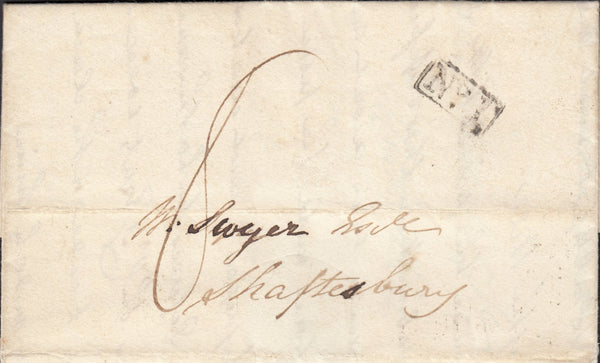 No. 1
6
W. Swyer Esqre
Shaftesbury